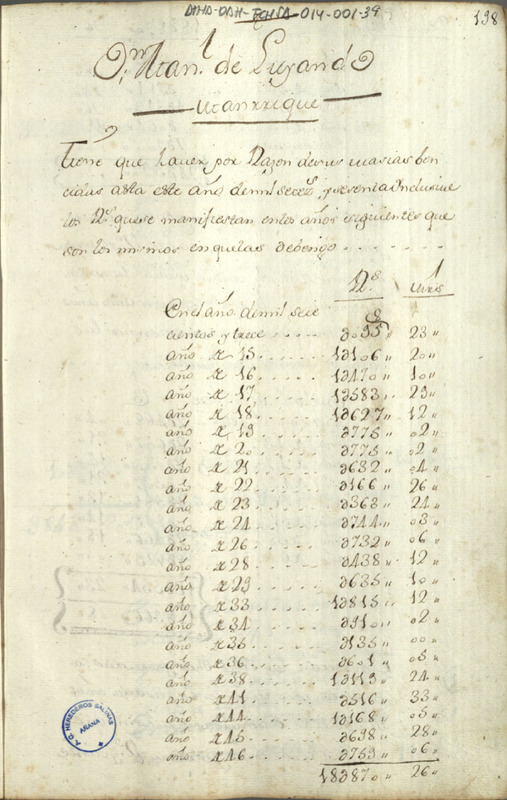 DAHA-DAH-FCHSA-014-001-39
198
Dn. Man.l de Luyando
Manrrique
Tiene que haver por Razon de sus varias ben
cidas asta este año de mil setez.s y sesenta Inclusive
los R.s que se manifiestan en los años siguientes que
son los mismos en que las debengo . . . . . .
R.s mrs
En el año de mil sete
cientos y trece ..... 3095,, 23,,
año de 15 ..... 13106,, 20,,
año de 16 ..... 13470,, 10,,
año de 17 ..... 13583,, 29,,
año de 18 ..... 13627,, 12,,
año de 19 ..... 3775,, 02,,
año de 20 ..... 3775,, 02,,
año de 21 ..... 3632,, 04,,
año de 22 ..... 3166,, 26,,
año de 23 ..... 3363,, 24,,
año de 24 ..... 3744,, 03,,
año de 26 ..... 3732,, 06,,
año de 28 ..... 3438,, 12,,
año de 29 ..... 3635,, 10,,
año de 33 ..... 13815,, 12,,
año de 34 ..... 3910,, 02,,
año de 35 ..... 3135,, 00,,
año de 36 ..... 3601,, 05,,
año de 38 ..... 13119,, 24,,
año de 41 ..... 3516,, 33,,
año de 44 ..... 13168,, 05,,
año de 45 ..... 3698,, 28,,
año de 46 ..... 3759,, 06,,
183870,, 26,,
A.G. HEREDEROS SALINAS
ARANA